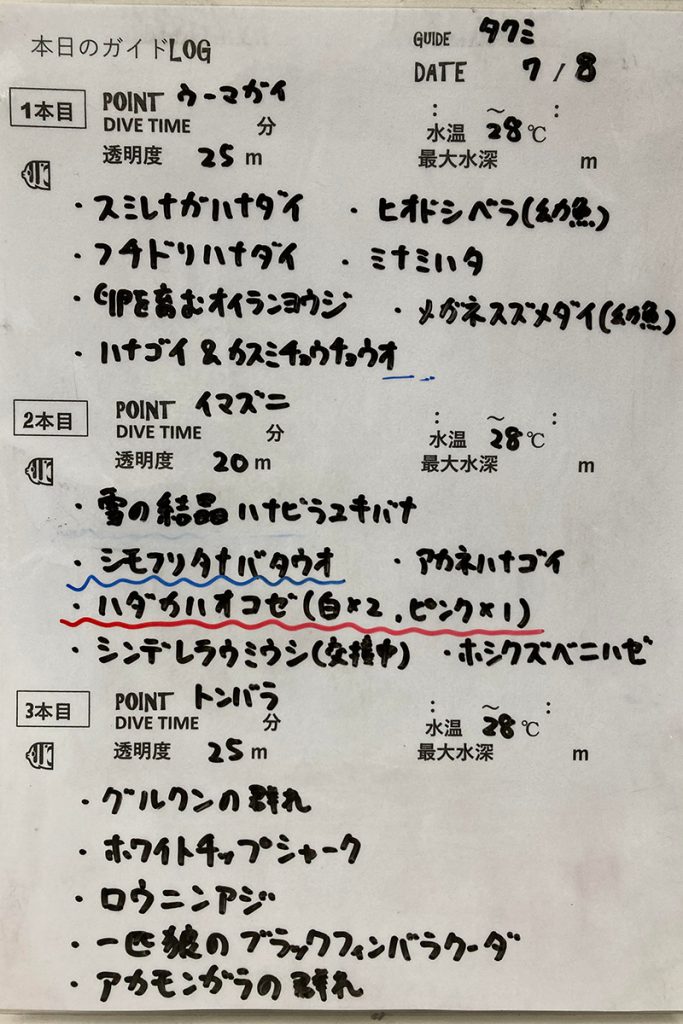 本日のガイドLOG
GUIDE タクミ
DATE 7 / 8
1本目 POINT ウーマガイ
DIVE TIME 分 : ～ :
透明度 25 m 水温 28℃
最大水深 m
・スミレナガハナダイ ・ヒオドシベラ(幼魚)
・フチドリハナダイ ・ミナミハタ
・卵を育むオイランヨウジ ・メガネスズメダイ(幼魚)
・ハナゴイ & カスミチョウチョウオ
2本目 POINT イマズニ
DIVE TIME 分 : ～ :
透明度 20 m 水温 28℃
最大水深 m
・雪の結晶 ハナビラユキバナ
・シモフリタナバタウオ ・アカネハナゴイ
・ハダカハオコゼ(白×2, ピンク×1)
・シンデレラウミウシ(交接中) ・ホシクズベニハゼ
3本目 POINT トンバラ
DIVE TIME 分 : ～ :
透明度 25 m 水温 28℃
最大水深 m
・グルクンの群れ
・ホワイトチップシャーク
・ロウニンアジ
・一匹狼のブラックフィンバラクーダ
・アカモンガラの群れ